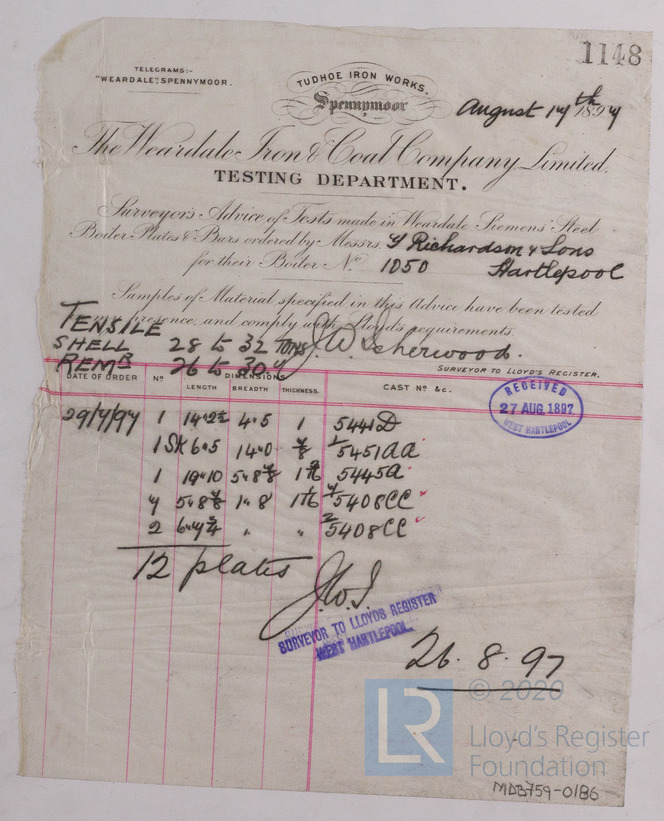 1148
TELEGRAMS:-
"WEARDALE" SPENNYMOOR.
TUDHOE IRON WORKS,
Spennymoor
August 17th 1897
The Weardale Iron & Coal Company, Limited.
TESTING DEPARTMENT.
Surveyor's Advice of Tests made in Weardale Siemens' Steel
Boiler Plates & Bars ordered by Messrs. T Richardson & Sons
for their Boiler No. 1050 Hartlepool
Samples of Material specified in this Advice have been tested
presence, and comply with Lloyd's requirements.
TENSILE
SHELL 28 to 32 TONS
REMR 26 to 30 "
SURVEYOR TO LLOYD'S REGISTER.
DATE OF ORDER No. DIMENSIONS CAST No. &c.
LENGTH BREADTH THICKNESS.
RECEIVED
27 AUG. 1897
WEST HARTLEPOOL
29/7/97 1 4.5 1 5441D
1 SK 6.5 14.0 7/8 5451AA
1 19.10 5445A
7 1.8 5408CC
2 " " 5408CC
12 plates
SURVEYOR TO LLOYDS REGISTER
WEST HARTLEPOOL.
26.8.97
© 2020
LR
Lloyd's Register
Foundation
MDB759-0186